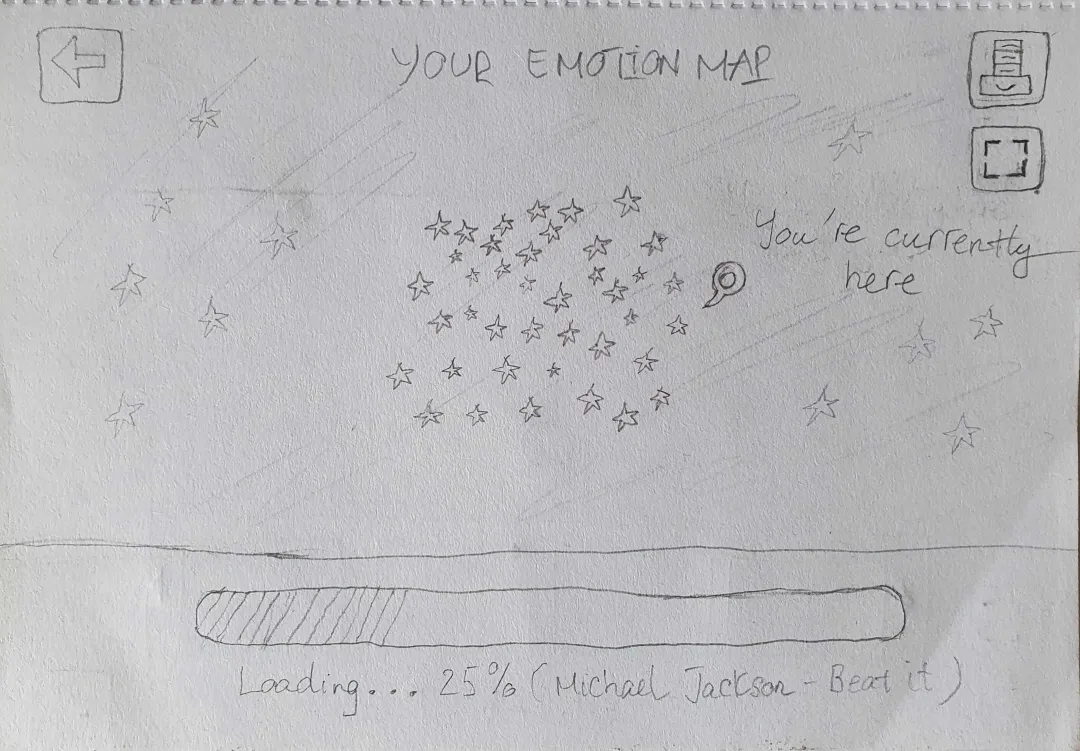 YOUR EMOTION MAP
You're currently
here
Loading... 25% (Michael Jackson - Beat it)